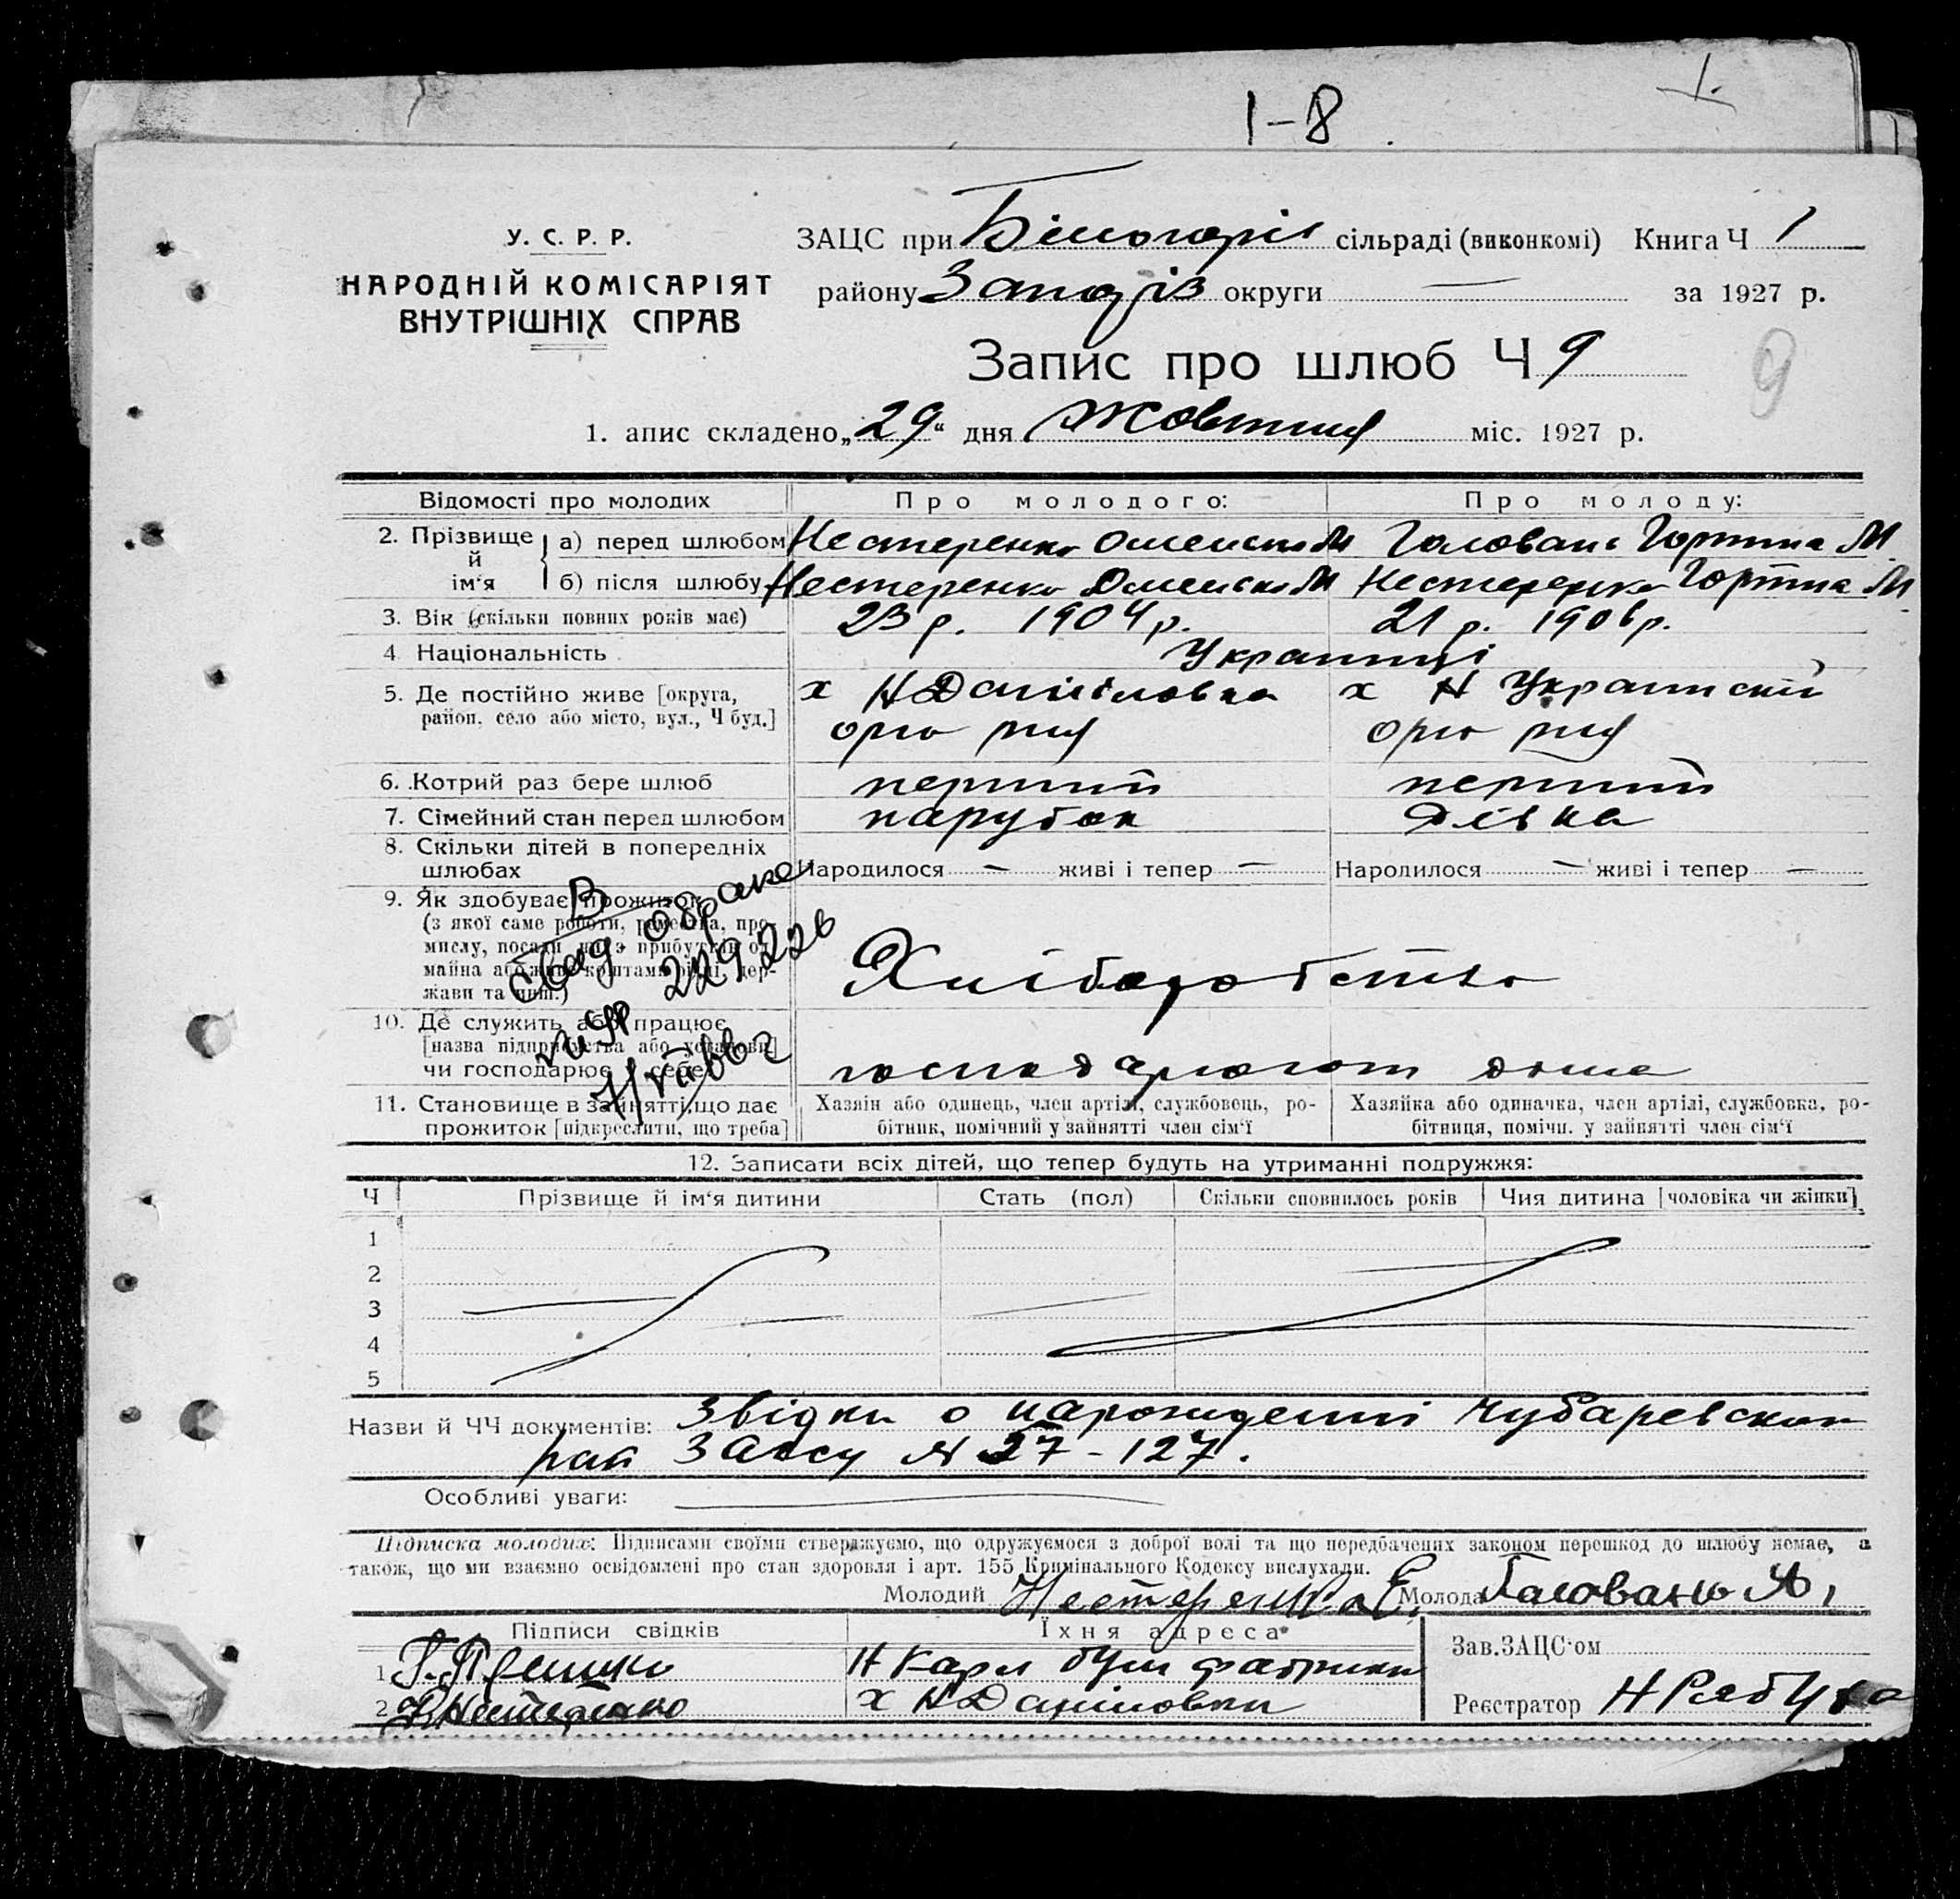 1-8
1.
У. С. Р. Р.
НАРОДНІЙ КОМІСАРІЯТ
ВНУТРІШНІХ СПРАВ
ЗАЦС при Білогоріс сільраді (виконкомі) Книга Ч 1
району Запоріз округи — за 1927 р.
Запис про шлюб Ч 9
9
1. апис складено „29“ дня Жовтня міс. 1927 р.
Відомості про молодих Про молодого: Про молоду:
2. Прізвище й ім‘я
а) перед шлюбом Нестеренко Олексій М Головань Горпина М
б) після шлюбу Нестеренко Олексій М Нестеренко Горпина М
3. Вік (скільки повних років має) 23 р. 1904 р. 21 р. 1906 р.
4 Національність Українці
5. Де постійно живе [округа, х Н Даніловка х Н Украінский
район. село або місто, вул., Ч буд.] орю рня орю рня
6. Котрий раз бере шлюб перший перший
7. Сімейний стан перед шлюбом парубок дівка
8. Скільки дітей в попередніх
шлюбах Народилося — живі і тепер — Народилося — живі і тепер —
9. Як здобуває прожиток
(з якої саме роботи, ремества, про-
мислу, посади, чи з прибутків од
майна або живе коштами рідні, дер-
жави та инш.) Хліборобство
10. Де служить або працює
[назва підприємства або установи]
чи господарює у себе господарюют дома
11. Становище в зайнятті,що дає Хазяїн або одинець, член артілі, службовець, ро- Хазяйка або одиначка, член артілі, службовка, ро-
прожиток [підкреслити, що треба] бітник, помічний у зайнятті член сім‘ї бітниця, помічн. у зайнятті член сім‘ї
В
браке
229226
12. Записати всіх дітей, що тепер будуть на утриманні подружжя:
Ч Прізвище й ім‘я дитини Стать (пол) Скільки сповнилось років Чия дитина [чоловіка чи жінки]
1
2
3
4
5
Назви й ЧЧ документів: Звідки о нарожденні Чубаревским
рай Загсу № 27-127.
Особливі уваги:
Підписка молодих: Підписами своїми стверджуємо, що одружуємося з доброї волі та що передбачених законом перешкод до шлюбу немає, а
також, що ми взаємно освідомлені про стан здоровля і арт. 155 Кримінального Кодексу вислухали.
Молодий Нестеренко Е. Молода Головань Я,
Підписи свідків Їхня адреса Зав.ЗАЦС‘ом
1 Н Карл фабрики
2 Нестеренко х Н Даніловки Реєстратор Н Рябуха